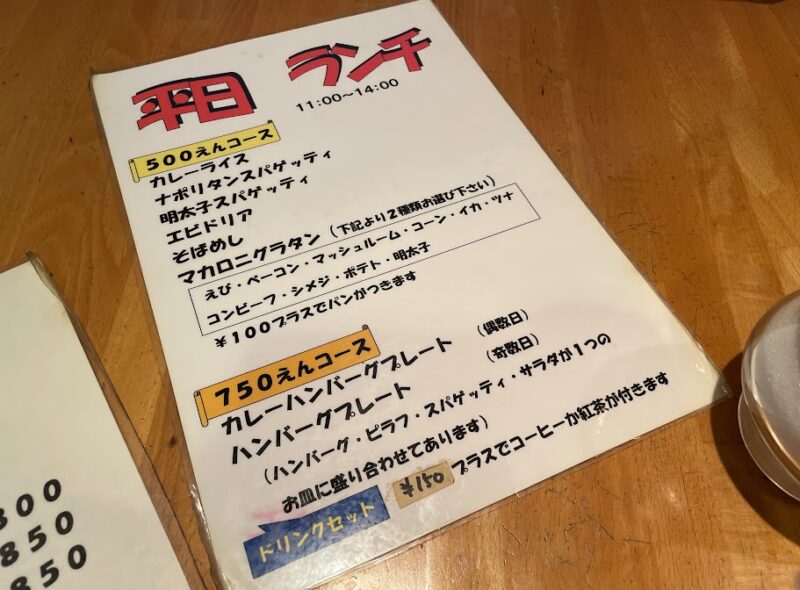 平日 ランチ
11:00~14:00
500えんコース
カレーライス
ナポリタンスパゲッティ
明太子スパゲッティ
エビドリア
そばめし
マカロニグラタン (下記より2種類お選び下さい)
えび・ベーコン・マッシュルーム・コーン・イカ・ツナ
コンビーフ・シメジ・ポテト・明太子
¥100プラスでパンがつきます
750えんコース
カレーハンバーグプレート (偶数日)
ハンバーグプレート (奇数日)
(ハンバーグ・ピラフ・スパゲッティ・サラダが1つの
お皿に盛り合わせてあります)
ドリンクセット ¥150 プラスでコーヒーか紅茶が付きます
800
850
850